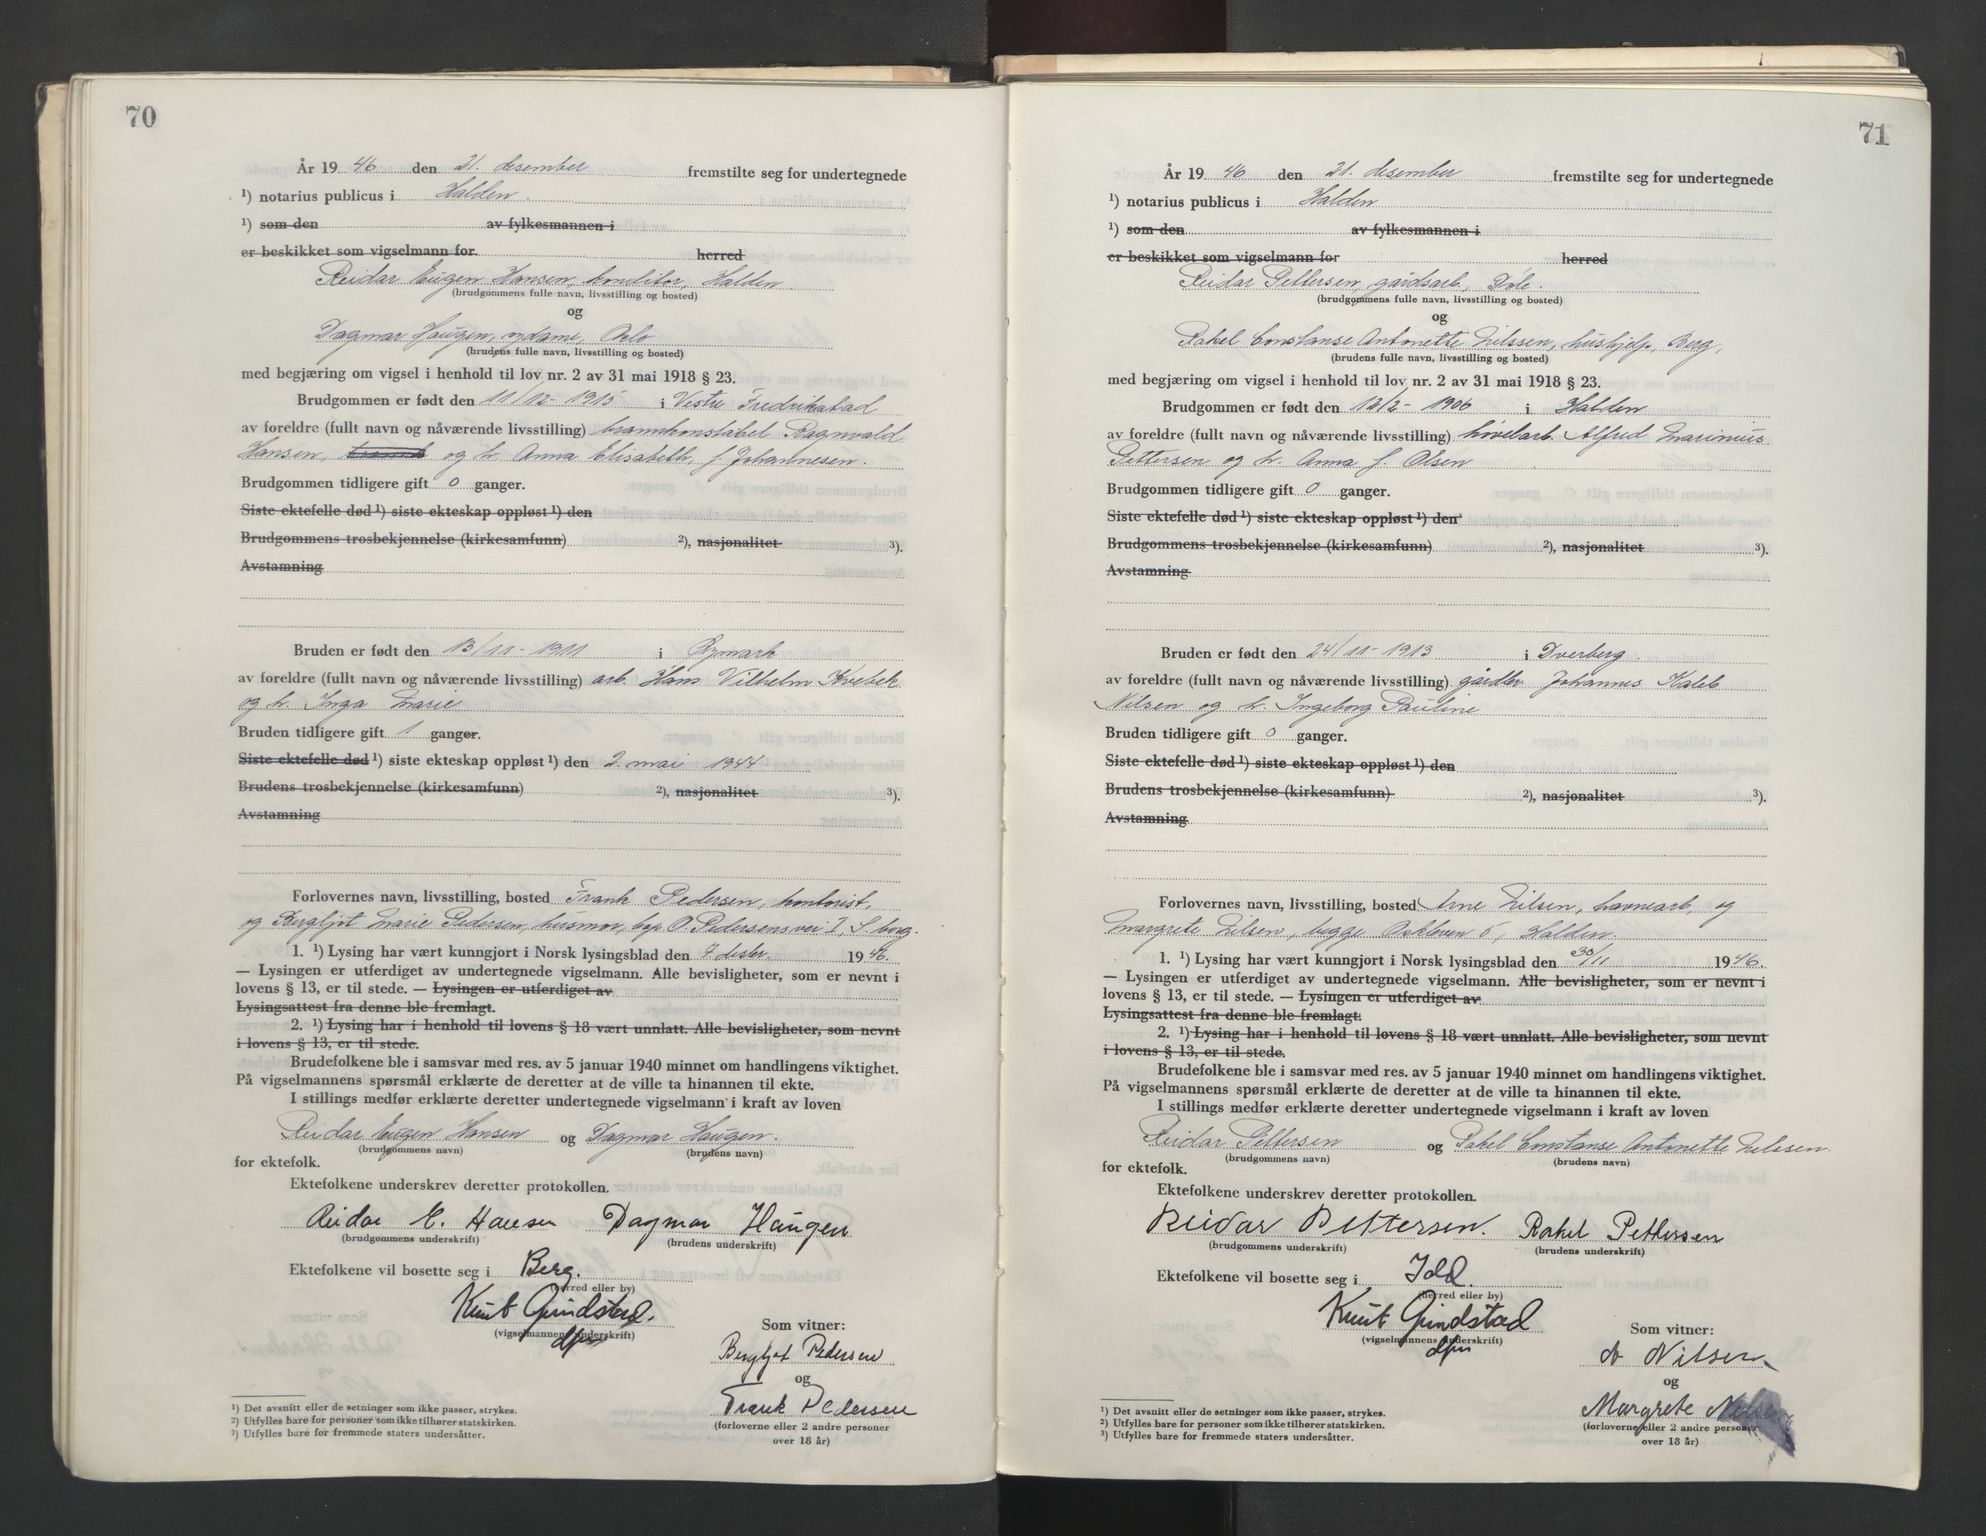 70
År 19 46 den 21. desember fremstilte seg for undertegnede
¹) notarius publicus i Halden.
¹) som den av fylkesmannen i
er beskikket som vigselmann for herred
Reidar Eugen Hansen, konditor, Halden.
(brudgommens fulle navn, livsstilling og bosted)
og
Dagmar Haugen, sydame, Oslo
(brudens fulle navn, livsstilling og bosted)
med begjæring om vigsel i henhold til lov nr. 2 av 31 mai 1918 § 23.
Brudgommen er født den 11/12-1915 i Vestre Fredrikstad
av foreldre (fullt navn og nåværende livsstilling) brannkonstabel Ragnvald
Hansen, og h. Anna Elisabeth, f. Johannesen.
Brudgommen tidligere gift 0 ganger.
Siste ektefelle død¹) siste ekteskap oppløst¹) den
Brudgommens trosbekjennelse (kirkesamfunn) ²), nasjonalitet ³).
Avstamning
Bruden er født den 13/11-1911 i Øymark
av foreldre (fullt navn og nåværende livsstilling) arb. Hans Vilhelm Kvebek
og h. Inga Marie
Bruden tidligere gift 1 ganger.
Siste ektefelle død¹) siste ekteskap oppløst¹) den 2. mai 1944
Brudens trosbekjennelse (kirkesamfunn) ²), nasjonalitet ³).
Avstamning
Forlovernes navn, livsstilling, bosted Frank Pedersen, kontorist,
og Bergljot Marie Pedersen, husmor, beg. O. Pedersens vei I, S.borg.
1. ¹) Lysing har vært kunngjort i Norsk lysingsblad den 7. desbr. 1946.
— Lysingen er utferdiget av undertegnede vigselmann. Alle bevisligheter, som er nevnt i
lovens § 13, er til stede. — Lysingen er utferdiget av
Lysingsattest fra denne ble fremlagt.
2. ¹) Lysing har i henhold til lovens § 18 vært unnlatt. Alle bevisligheter, som nevnt
i lovens § 13, er til stede.
Brudefolkene ble i samsvar med res. av 5 januar 1940 minnet om handlingens viktighet.
På vigselmannens spørsmål erklærte de deretter at de ville ta hinannen til ekte.
I stillings medfør erklærte deretter undertegnede vigselmann i kraft av loven
Reidar Eugen Hansen og Dagmar Haugen.
(brudgommens navn) (brudens navn)
for ektefolk.
Ektefolkene underskrev deretter protokollen.
Reidar E. Hansen Dagmar Haugen
(brudgommens underskrift) (brudens underskrift)
Ektefolkene vil bosette seg i Berg.
(herred eller by)
Knut Grindstad.
(vigselmannens underskrift)
dfm
Som vitner:
Bergljot Pedersen
og
Frank Pedersen
(forloverne eller 2 andre personer
over 18 år)
¹) Det avsnitt eller de setninger som ikke passer, strykes.
²) Utfylles bare for personer som ikke tilhører statskirken.
³) Utfylles bare for fremmede staters undersåtter.
71
År 19 46 den 21. desember fremstilte seg for undertegnede
¹) notarius publicus i Halden
¹) som den av fylkesmannen i
er beskikket som vigselmann for herred
Reidar Pettersen, gårdsarb.,
(brudgommens fulle navn, livsstilling og bosted)
og
Rakel Constanse Antonette Nilssen, hushjelp, Berg,
(brudens fulle navn, livsstilling og bosted)
med begjæring om vigsel i henhold til lov nr. 2 av 31 mai 1918 § 23.
Brudgommen er født den 12/2-1906 i Halden
av foreldre (fullt navn og nåværende livsstilling) høvelarb. Alfred Marinius
Pettersen og h. Anna f. Olsen
Brudgommen tidligere gift 0 ganger.
Siste ektefelle død¹) siste ekteskap oppløst¹) den
Brudgommens trosbekjennelse (kirkesamfunn) ²), nasjonalitet ³).
Avstamning
Bruden er født den 24/11-1913 i Dverberg.
av foreldre (fullt navn og nåværende livsstilling) gårdbr. Johannes Kaleb
Nilsen og h. Ingeborg Pauline
Bruden tidligere gift 0 ganger.
Siste ektefelle død¹) siste ekteskap oppløst¹) den
Brudens trosbekjennelse (kirkesamfunn) ²), nasjonalitet ³).
Avstamning
Forlovernes navn, livsstilling, bosted Arne Nilsen, havnearb, og
Margrete Nilsen, begge Oskleven 6, Halden.
1. ¹) Lysing har vært kunngjort i Norsk lysingsblad den 30/11 1946.
— Lysingen er utferdiget av undertegnede vigselmann. Alle bevisligheter, som er nevnt i
lovens § 13, er til stede. — Lysingen er utferdiget av
Lysingsattest fra denne ble fremlagt.
2. ¹) Lysing har i henhold til lovens § 18 vært unnlatt. Alle bevisligheter, som nevnt
i lovens § 13, er til stede.
Brudefolkene ble i samsvar med res. av 5 januar 1940 minnet om handlingens viktighet.
På vigselmannens spørsmål erklærte de deretter at de ville ta hinannen til ekte.
I stillings medfør erklærte deretter undertegnede vigselmann i kraft av loven
Reidar Pettersen og Rakel Constanse Antonette Nilssen.
(brudgommens navn) (brudens navn)
for ektefolk.
Ektefolkene underskrev deretter protokollen.
Reidar Pettersen. Rakel Pettersen
(brudgommens underskrift) (brudens underskrift)
Ektefolkene vil bosette seg i Idd.
(herred eller by)
Knut Grindstad
(vigselmannens underskrift)
dfm
Som vitner:
A Nilsen
og
Margrete Nilsen
(forloverne eller 2 andre personer
over 18 år)
¹) Det avsnitt eller de setninger som ikke passer, strykes.
²) Utfylles bare for personer som ikke tilhører statskirken.
³) Utfylles bare for fremmede staters undersåtter.